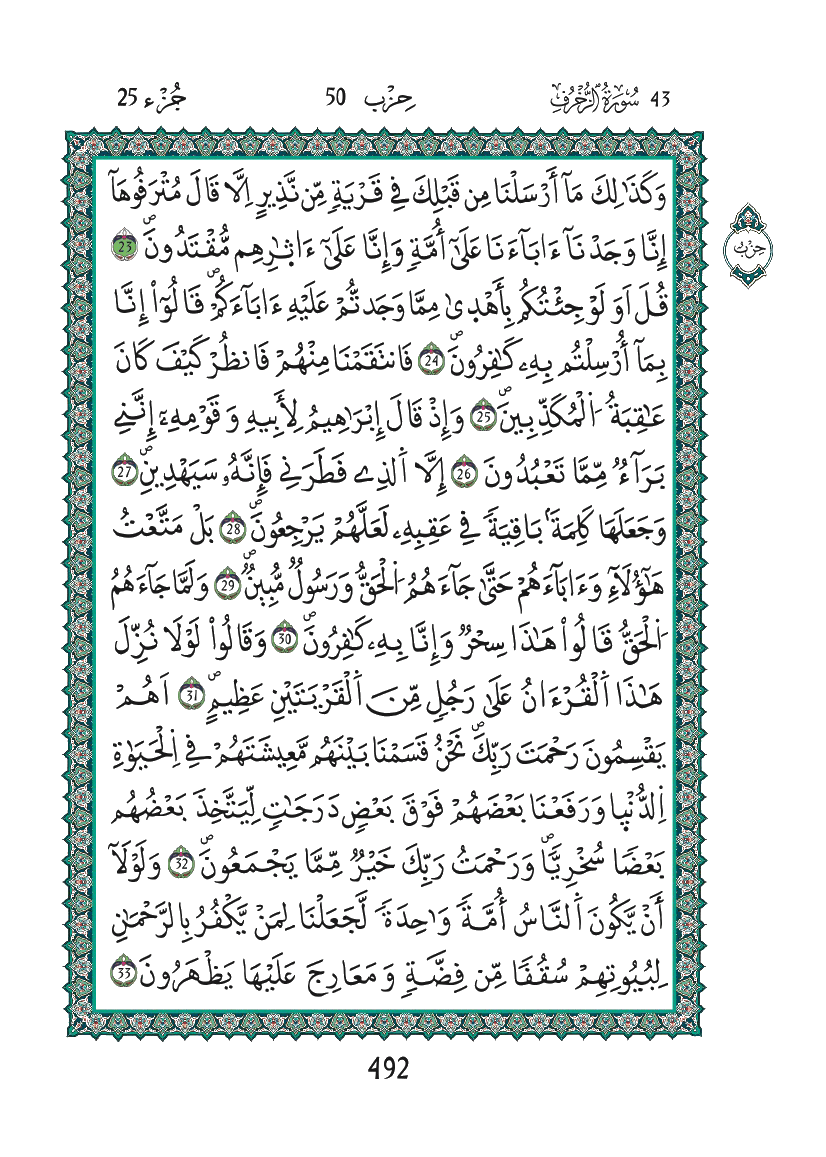 43 سُورَةُ الزُّخْرُفِ
حِزْب 50
جُزْء 25
وَكَذَٰلِكَ مَآ أَرْسَلْنَا مِن قَبْلِكَ فِے قَرْيَةٖ مِّن نَّذِيرٍ اِلَّا قَالَ مُتْرَفُوهَآ
إِنَّا وَجَدْنَآ ءَابَآءَنَا عَلَىٰٓ أُمَّةٖ وَإِنَّا عَلَىٰٓ ءَاثٰ۪رِهِم مُّقْتَدُونَۖ 23
قُلَ اَوَ لَوْ جِئْتُكُم بِأَهْد۪ىٰ مِمَّا وَجَدتُّمْ عَلَيْهِ ءَابَآءَكُمْۖ قَالُوٓاْ إِنَّا
بِمَآ أُرْسِلْتُم بِهِۦ كَٰفِرُونَۖ 24 فَانتَقَمْنَا مِنْهُمْ فَانظُرْ كَيْفَ كَانَ
عَٰقِبَةُ اُ۬لْمُكَذِّبِينَۖ 25 وَإِذْ قَالَ إِبْرَاهِيمُ لِأَبِيهِ وَقَوْمِهِۦٓ إِنَّنِے
بَرَآءٞ مِّمَّا تَعْبُدُونَ 26 إِلَّا اَ۬لذِے فَطَرَنِے فَإِنَّهُۥ سَيَهْدِينِۖ 27
وَجَعَلَهَا كَلِمَةَۢ بَاقِيَةٗ فِے عَقِبِهِۦ لَعَلَّهُمْ يَرْجِعُونَۖ 28 بَلْ مَتَّعْتُ
هَٰٓؤُلَآءِ وَءَابَآءَهُمْ حَتَّىٰ جَآءَهُمُ اُ۬لْحَقُّ وَرَسُولٞ مُّبِينٞۖ 29 وَلَمَّا جَآءَهُمُ
اُ۬لْحَقُّ قَالُواْ هَٰذَا سِحْرٞ وَإِنَّا بِهِۦ كَٰفِرُونَۖ 30 وَقَالُواْ لَوْلَا نُزِّلَ
هَٰذَا اَ۬لْقُرْءَانُ عَلَىٰ رَجُلٖ مِّنَ اَ۬لْقَرْيَتَيْنِ عَظِيمٍۖ 31 اَهُمْ
يَقْسِمُونَ رَحْمَتَ رَبِّكَۖ نَحْنُ قَسَمْنَا بَيْنَهُم مَّعِيشَتَهُمْ فِے اِ۬لْحَيَوٰةِ
اِ۬لدُّنْي۪ا وَرَفَعْنَا بَعْضَهُمْ فَوْقَ بَعْضٖ دَرَجَٰتٖ لِّيَتَّخِذَ بَعْضُهُم
بَعْضٗا سُخْرِيّٗاۖ وَرَحْمَتُ رَبِّكَ خَيْرٞ مِّمَّا يَجْمَعُونَۖ 32 وَلَوْلَآ
أَنْ يَّكُونَ اَ۬لنَّاسُ أُمَّةٗ وَٰحِدَةٗ لَّجَعَلْنَا لِمَنْ يَّكْفُرُ بِالرَّحْمَٰنِ
لِبُيُوتِهِمْ سُقُفٗا مِّن فِضَّةٖ وَمَعَارِجَ عَلَيْهَا يَظْهَرُونَ 33
حِزْب
492